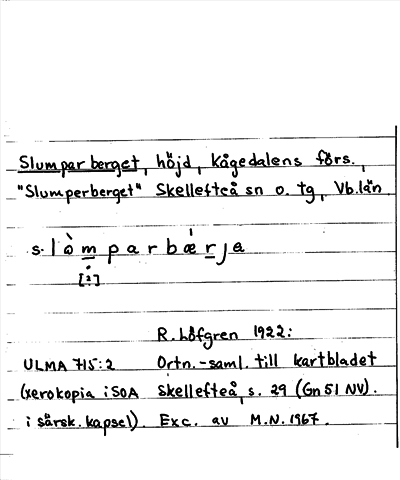 Slumparberget, höjd, Kågedalens förs.,
"Slumperberget" Skellefteå sn o. tg, Vb.län
s.lòmparbærja
[:]
R. Löfgren 1922:
ULMA 715:2 Ortn.-saml. till kartbladet
(xerokopia i SOA Skellefteå, s. 29 (Gn 51 NV).
i särsk. kapsel). Exc. av M.N. 1967.